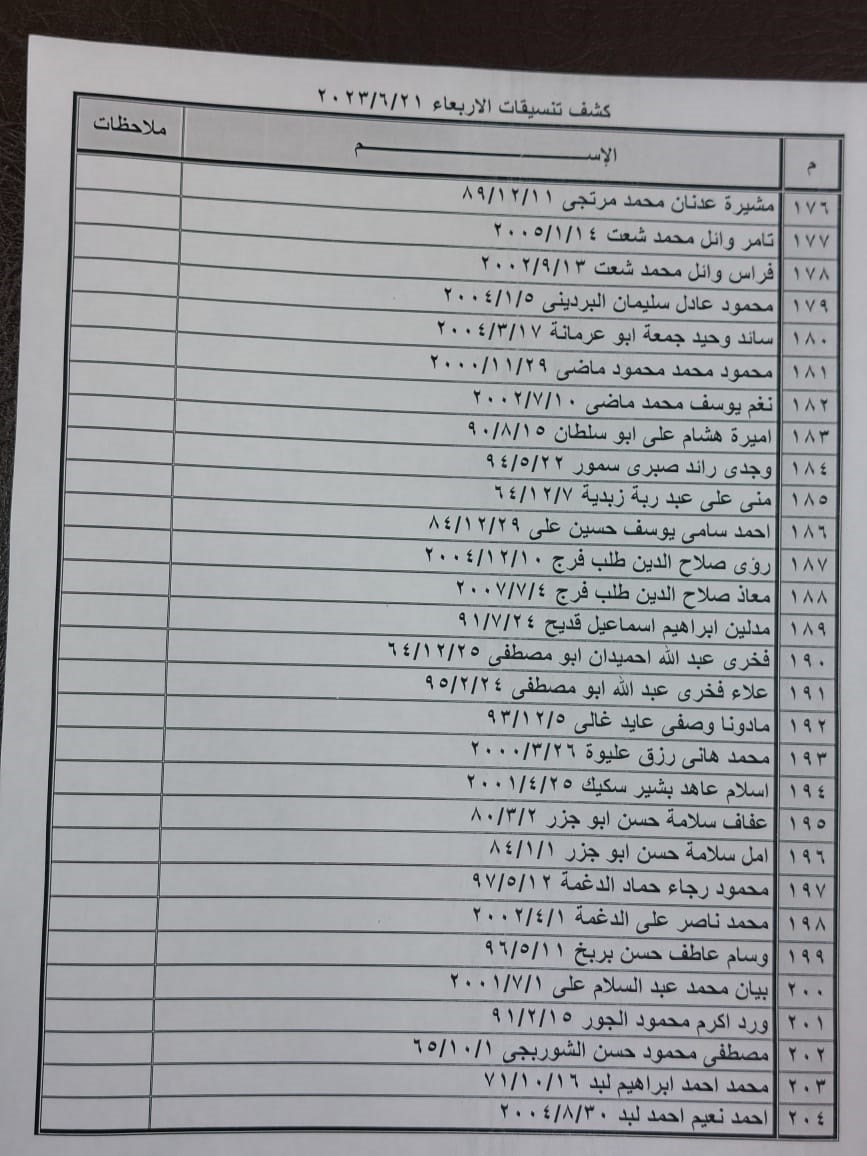 كشف تنسيقات الاربعاء ٢٠٢٣/٦/٢١
م الإســـــــم ملاحظات
١٧٦ مشيرة عدنان محمد مرتجى ٨٩/١٢/١١
١٧٧ تامر وائل محمد شعت ٢٠٠٥/١/١٤
١٧٨ فراس وائل محمد شعت ٢٠٠٢/٩/١٣
١٧٩ محمود عادل سليمان البردينى ٢٠٠٤/١/٥
١٨٠ سائد وحيد جمعة ابو عرمانة ٢٠٠٤/٣/١٧
١٨١ محمود محمد محمود ماضى ٢٠٠٠/١١/٢٩
١٨٢ نغم يوسف محمد ماضى ٢٠٠٢/٧/١٠
١٨٣ اميرة هشام على ابو سلطان ٩٠/٨/١٥
١٨٤ وجدى رائد صبرى سمور ٩٤/٥/٢٢
١٨٥ منى على عبد ربة زبدية ٦٤/١٢/٧
١٨٦ احمد سامى يوسف حسين على ٨٤/١٢/٢٩
١٨٧ رؤى صلاح الدين طلب فرج ٢٠٠٤/١٢/١٠
١٨٨ معاذ صلاح الدين طلب فرج ٢٠٠٧/٧/٤
١٨٩ مدلين ابراهيم اسماعيل قديح ٩١/٧/٢٤
١٩٠ فخرى عبد الله احميدان ابو مصطفى ٦٤/١٢/٢٥
١٩١ علاء فخرى عبد الله ابو مصطفى ٩٥/٢/٢٤
١٩٢ مادونا وصفى عايد غالى ٩٣/١٢/٥
١٩٣ محمد هانى رزق عليوة ٢٠٠٠/٣/٢٦
١٩٤ اسلام عاهد بشير سكيك ٢٠٠١/٤/٢٥
١٩٥ عفاف سلامة حسن ابو جزر ٨٠/٣/٢
١٩٦ امل سلامة حسن ابو جزر ٨٤/١/١
١٩٧ محمود رجاء حماد الدغمة ٩٧/٥/١٢
١٩٨ محمد ناصر على الدغمة ٢٠٠٢/٤/١
١٩٩ وسام عاطف حسن بربخ ٩٦/٥/١١
٢٠٠ بيان محمد عبد السلام على ٢٠٠١/٧/١
٢٠١ ورد اكرم محمود الجور ٩١/٢/١٥
٢٠٢ مصطفى محمود حسن الشوربجى ٦٥/١٠/١
٢٠٣ محمد احمد ابراهيم لبد ٧١/١٠/١٦
٢٠٤ احمد نعيم احمد لبد ٢٠٠٤/٨/٣٠